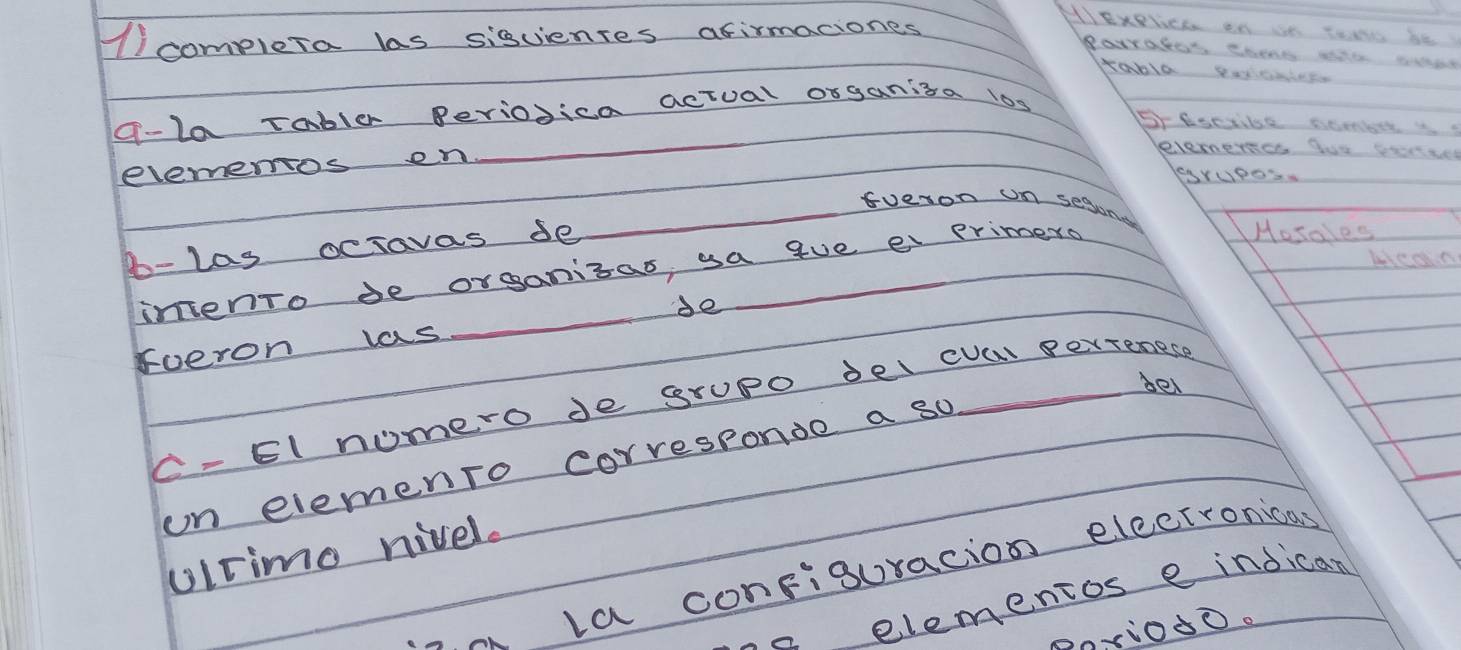 1) completa las siguientes afirmaciones
a- la tabla Periodica actual organiza los
elementos en
b- las octavas de fueron un
intento de organizar, ya que el primero
fueron las de
c- El numero de grupo del cual pertenece
un elemento corresponde a su del
ultimo nivel.
la configuracion electronicas
elementos e indican
periodo.
4) explica en un
tabla
5) Escribe
elementos que
grupos.
Metales